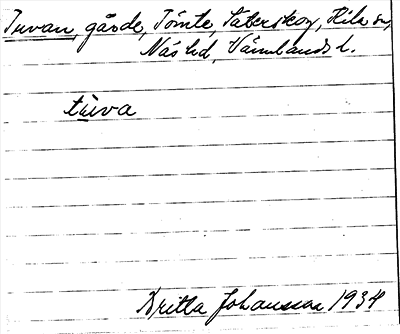 Tuvan, gärde, Tömte, Säterskog, Hila sn,
Näs hd, Värmlands l.
tùva
Britta Johansson 1934